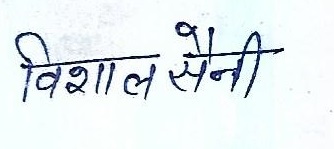 विशाल सैनी